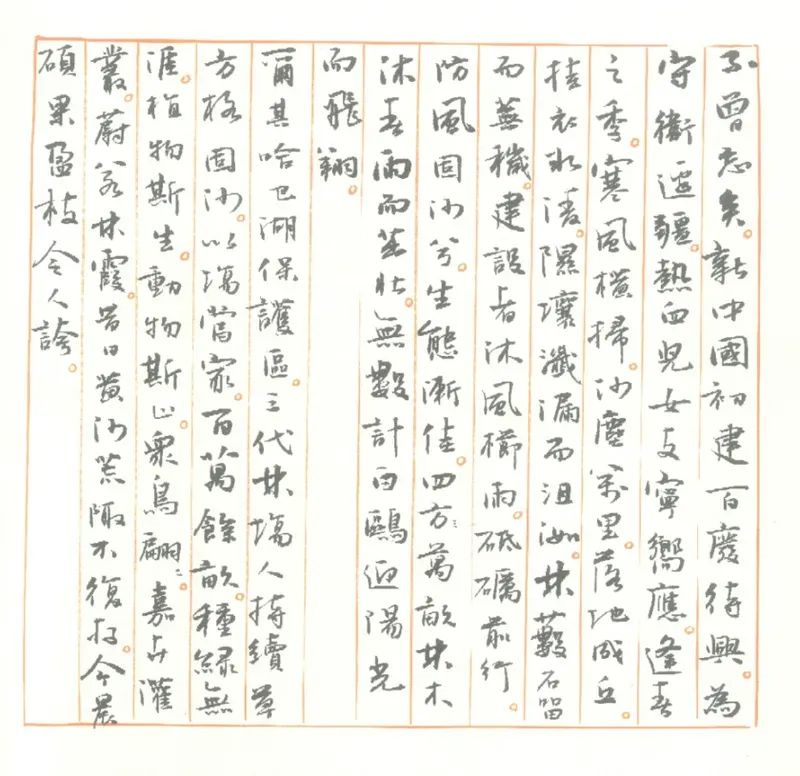 不曾忘矣。新中國初建百廢待興。為
守衛邊疆。熱血兒女支寧嚮應。逢春
之季。寒風橫掃。沙塵萬里。落地成丘。
挂衣冰淩。隰壤瀸漏而沮洳。林藪石留
而蕪穢。建設者沐風櫛雨。砥礪前行。
防風固沙兮。生態漸佳。四方萬畝林木
沐春雨而茁壯。無數計白鷗迎陽光
而飛翔。
爾其哈巴湖保護區。三代林塲人持續草
方格固沙。以塲當家。百萬餘畝。種綠無
涯。植物斯生。動物斯止。衆鳥翩:。嘉卉灌
叢。蔚若林霞。昔日黃沙荒陬不復在。今晨
碩果盈枝令人誇。